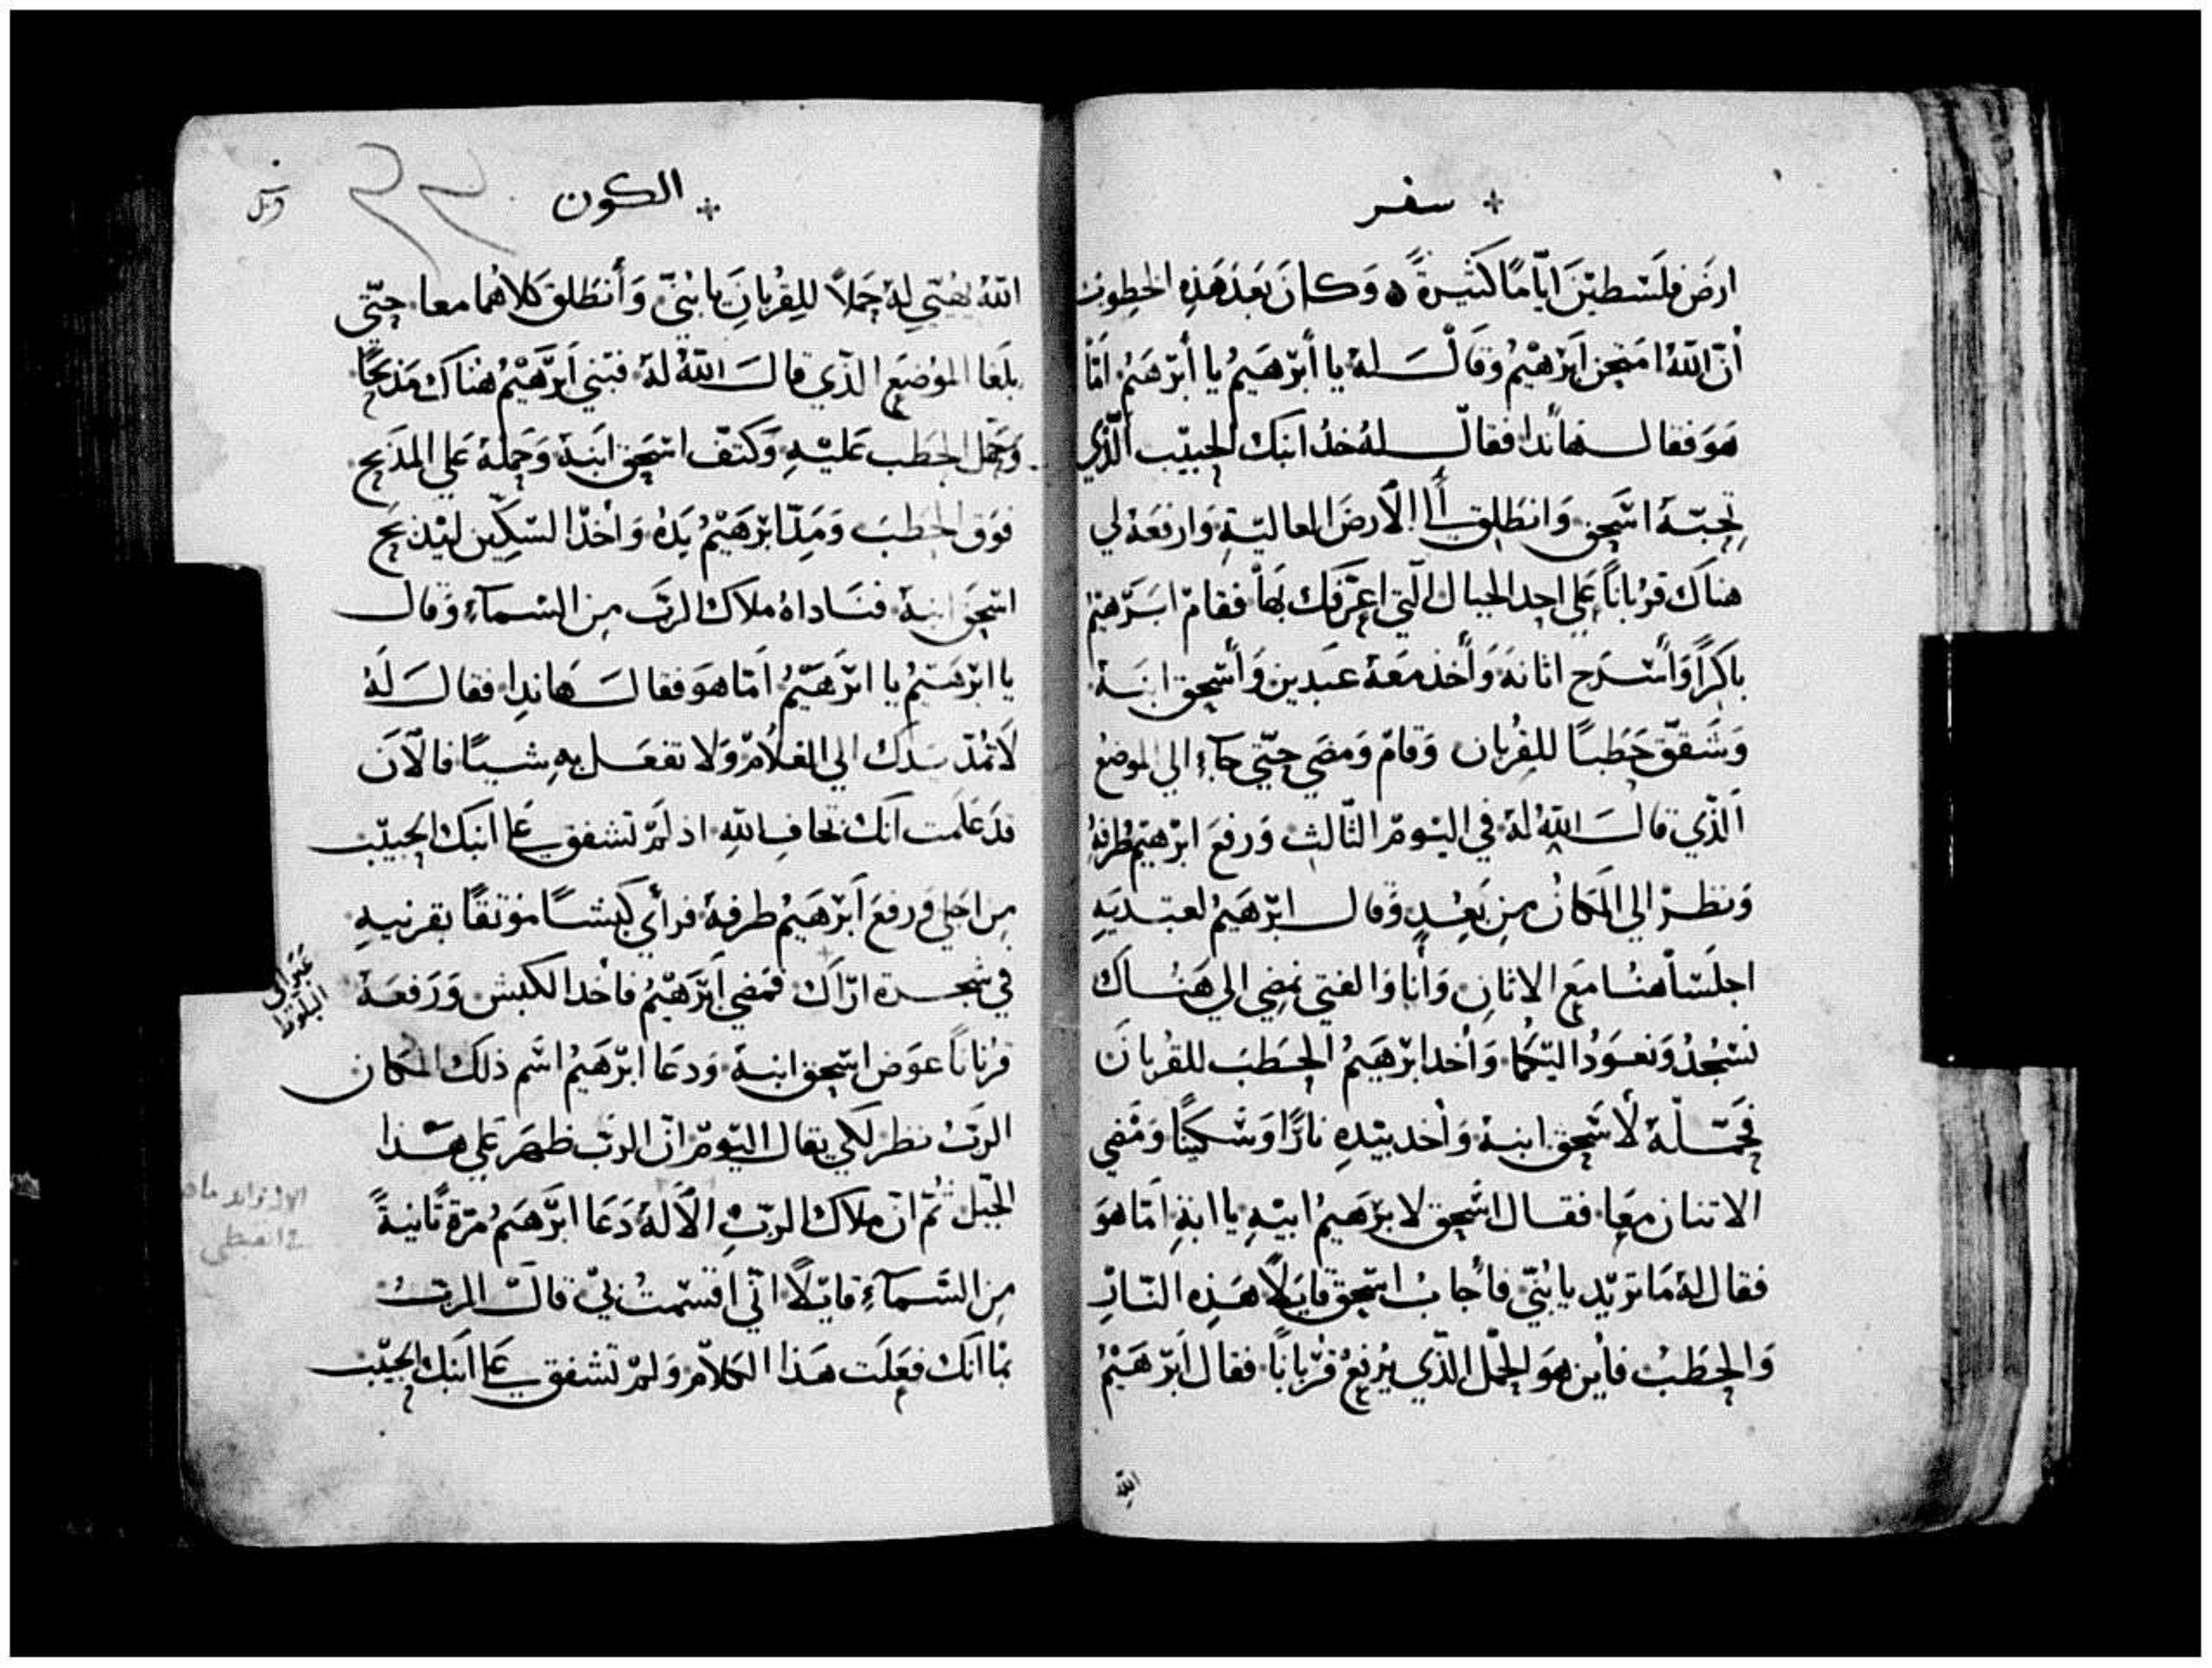 سفر
ارض فلسطين اياما كثيرة ه وكان بعد هذه الخطوب
أن الله امتحن ابرهيم وقال له يا أبرهيم يا أبرهيم اما
هو فقال هاندا فقال له خد ابنك الحبيب الذي
تحبه اسحق وانطلق الى الأرض العالية وارفعه لي
هناك قربانا علي احد الجبال التي اعرفك بها فقام ابرهيم
باكرا وأسرج اتانه وأخذ معه عبدين وأسحق ابنه
وشقق حطبا للقربان وقام ومضي حتي جآء الي الموضع
الذي قال الله له في اليوم الثالث ورفع ابرهيم طرفه
ونظر الي المكان من بعد وقال ابرهيم لعبديه
اجلسا هنا مع الاتان وأنا والفتي نمضي الي هناك
نسجد ونعود اليكما وأخد ابرهيم الحطب للقربان
فحمله لأسحق ابنه وأخد بيده نارا وسكينا ومضي
الاتنان معا فقال اسحق لابرهيم ابيه يا ابة اما هو
فقال له ما تريد يا بني فأجاب اسحق قايلا هذه النار
والحطب فأين هو الحمل الذي يرفع قربانا فقال ابرهيم
الله
الكون
الله يهيي له حملا للقربان يا بني وأنطلق كلاهما معا حتي
بلغا الموضع الذي قال الله له فبني ابرهيم هناك مذبحا
وحمل الحطب عليه وكتف اسحق ابنه وحمله علي المذبح
فوق الحطب ومد ابرهيم يده وأخذ السكين ليذبح
اسحق ابنه فناداه ملاك الرب من السمآء وقال
يا ابرهيم يا ابرهيم اما هو فقال هاندا فقال له
لا تمد يدك الي الغلام ولا تفعل به شيا فالآن
قد علمت انك تخاف الله اذ لم تشفق على ابنك الحبيب
من اجلي ورفع ابرهيم طرفه فرأي كبشا موثقا بقرنيه
في شجرة اراك فمضي ابرهيم فأخد الكبش ورفعه
البلوط
قربانا عوض اسحق ابنه ودعا ابرهيم اسم ذلك المكان
الرب نظر لكي يقال اليوم ان الرب ظهر علي هذا
الجبل ثم ان ملاك الرب الآله دعا ابرهيم مرة ثانية
من السمآء قايلا اني اقسمت بي قال الرب
بما انك فعلت هذا الكلام ولم تشفق على ابنك الحبيب